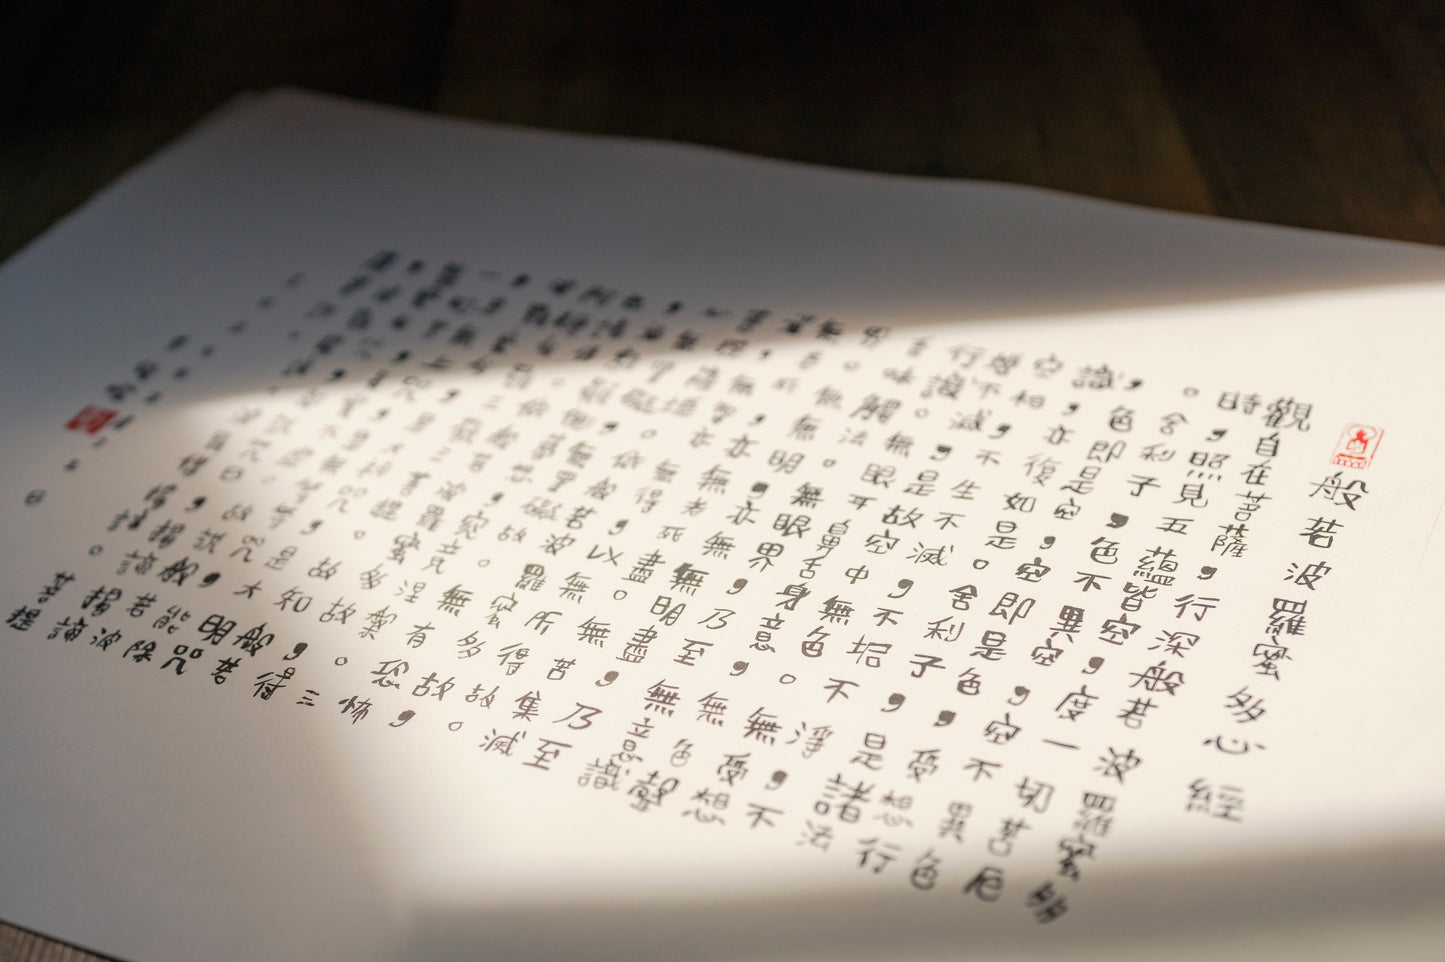 般若波羅蜜多心經
觀自在菩薩，行深般若波羅蜜多
時，照見五蘊皆空，度一切苦厄
。舍利子，色不異空，空不異色
，色即是空，空即是色，受想行
識，亦復如是。舍利子，是諸法
空相，不生不滅，不垢不淨，不
不減，是故空中無色，無受想
行識。無眼耳鼻舌身意，無色聲
味觸法。無眼界，乃至無意識
界。無無明，亦無無明盡，乃至
無 死，亦無老死盡。無苦集滅
無智，亦無得，以無所得故。
。依般若波羅蜜多故，
礙。無罣礙故，無有恐怖
，究竟涅槃。三
依般若波羅蜜多故，得
三菩提。故知般若
是大神咒，是大明咒
咒，能除
故說般若波
揭諦
菩提